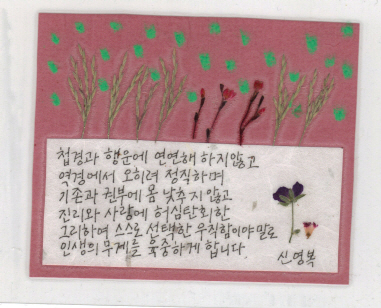 첩경과 행운에 연연해 하지않고
역경에서 오히려 정직하며
기존과 권부에 몸 낮추지 않고
진리와 사랑에 허심탄회한
그리하여 스스로 선택한 우직함이야 말로
인생의 무게를 육중하게 합니다
신영복